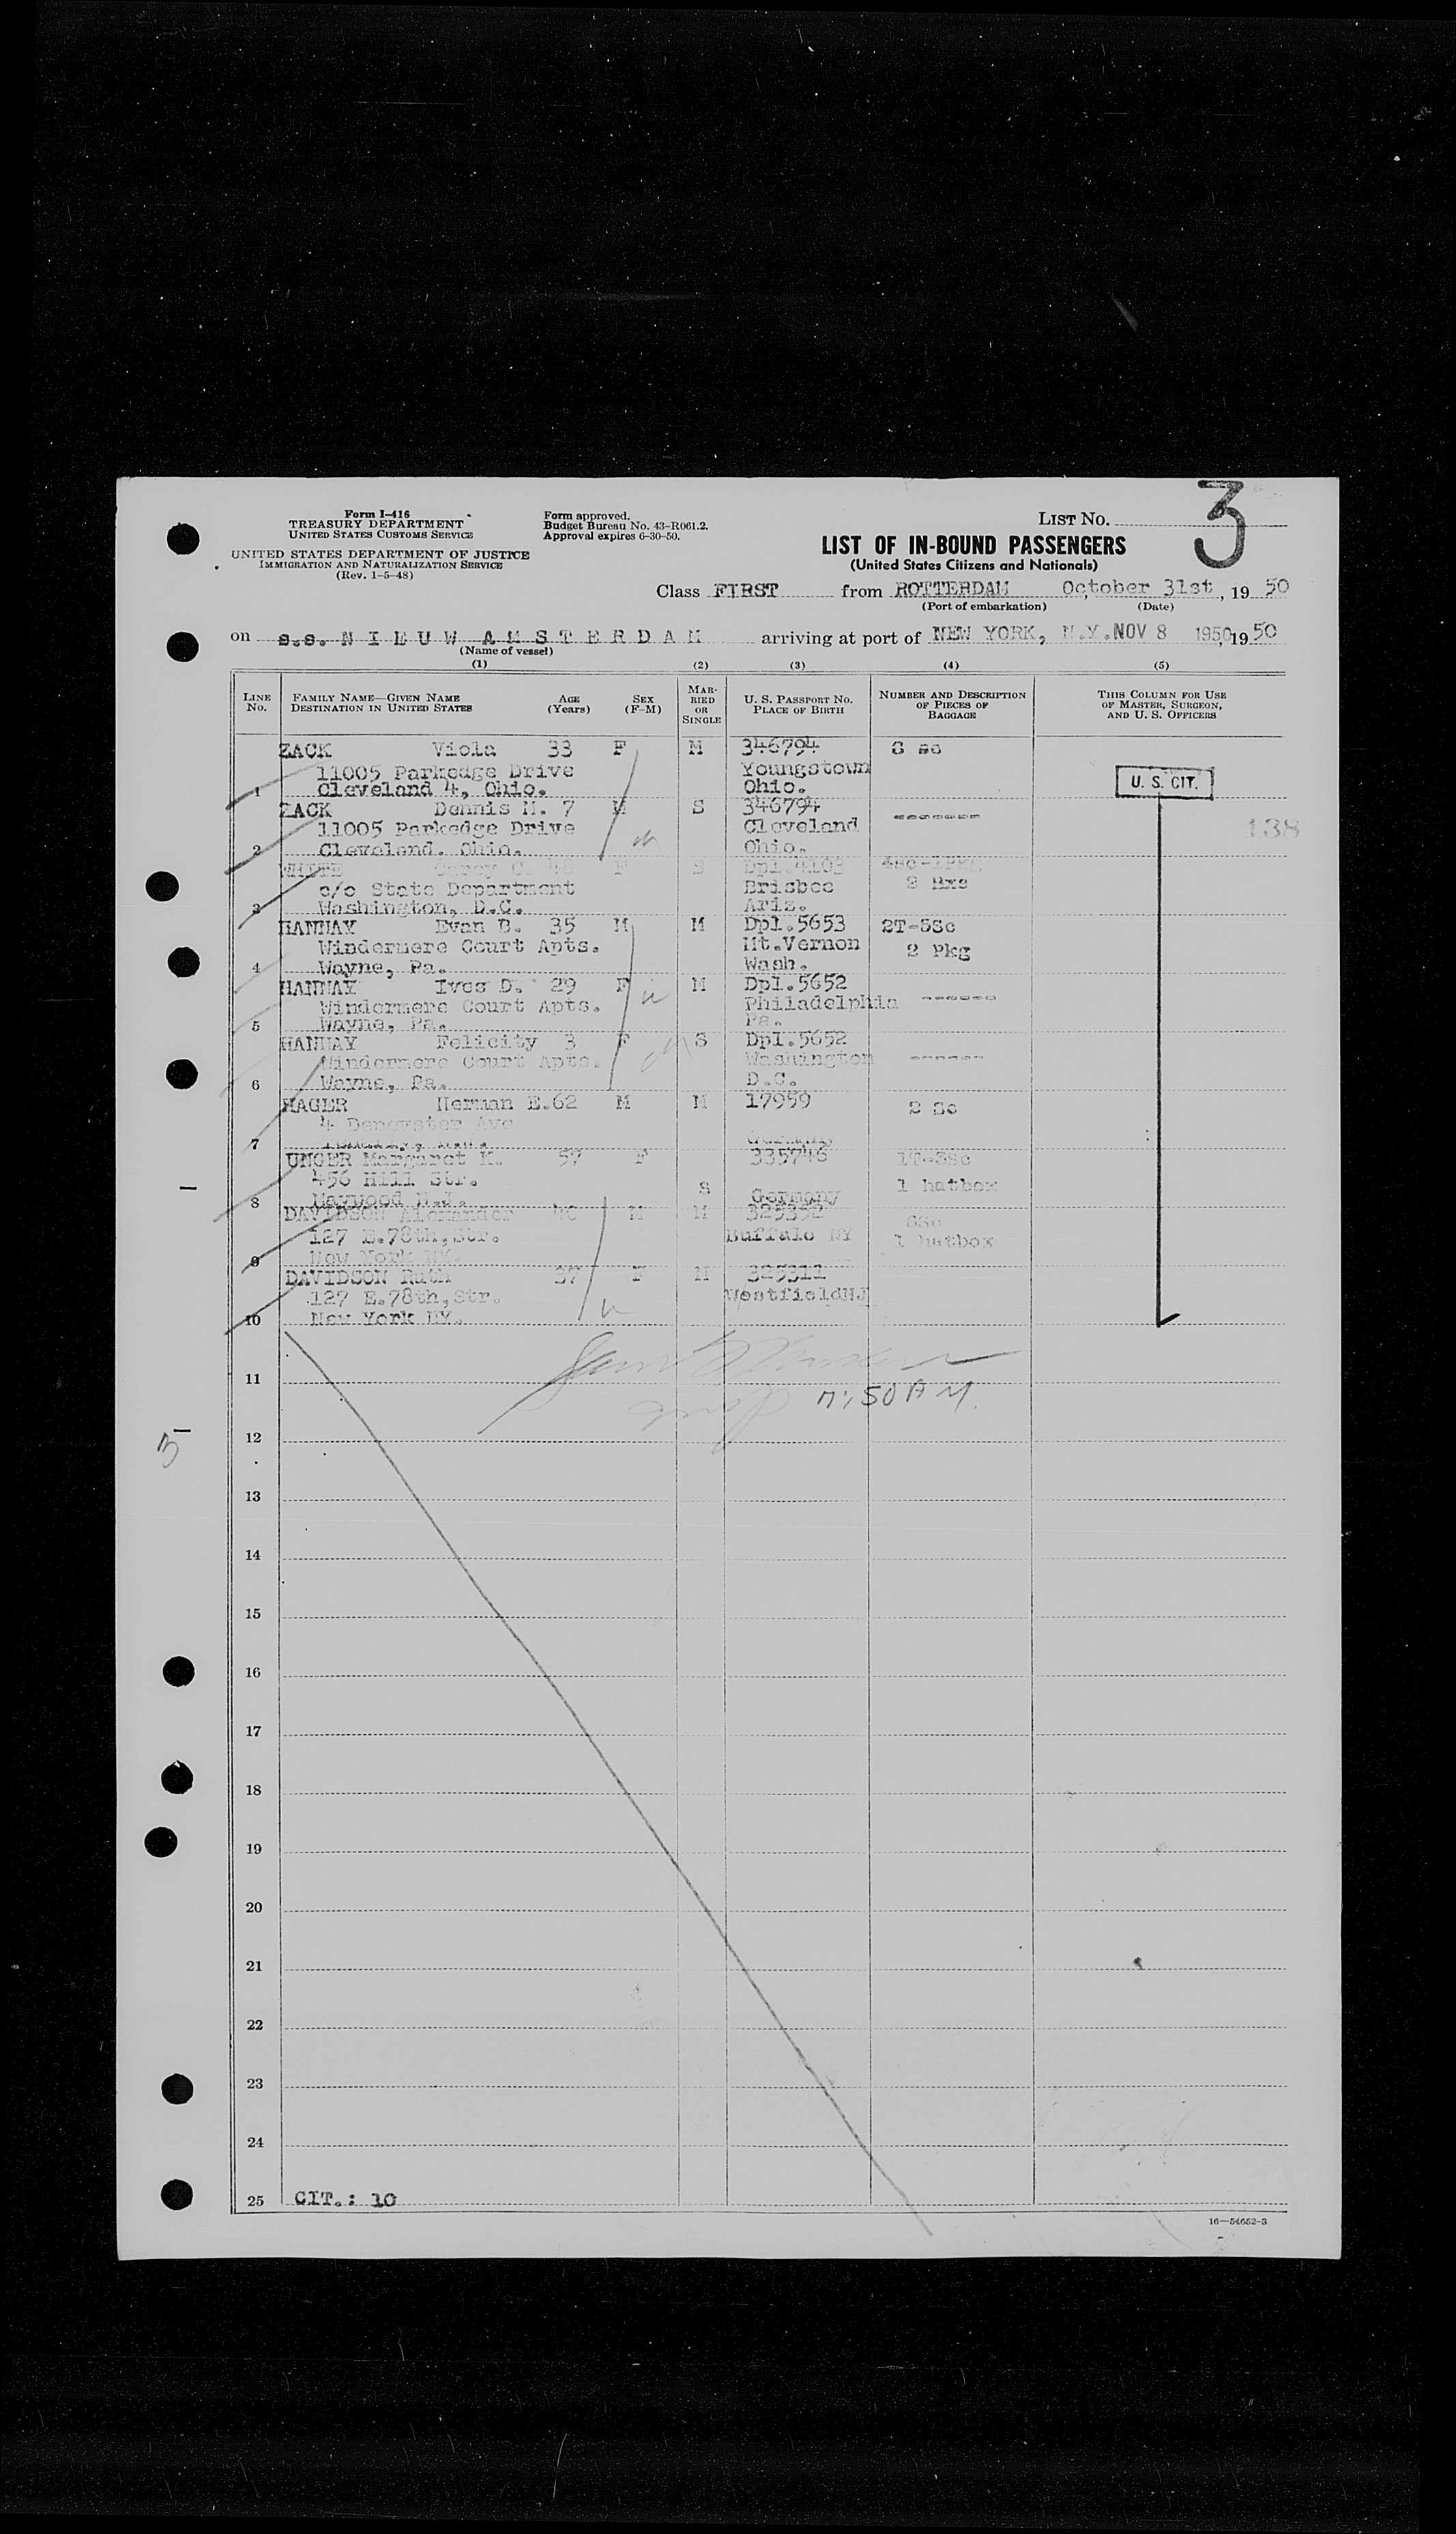 Form I-416
TREASURY DEPARTMENT
UNITED STATES CUSTOMS SERVICE
UNITED STATES DEPARTMENT OF JUSTICE
IMMIGRATION AND NATURALIZATION SERVICE
(Rev. 1-5-48)
Form approved.
Budget Bureau No. 43-R061.2.
Approval expires 6-30-50.
LIST NO. 3
LIST OF IN-BOUND PASSENGERS
(United States Citizens and Nationals)
Class FIRST from ROTTERDAM October 31st, 19 50
(Port of embarkation) (Date)
on s.s. N I E U W A M S T E R D A M arriving at port of NEW YORK, N.Y. NOV 8 1950, 19 50
(Name of vessel)
(1) (2) (3) (4) (5)
LINE No. FAMILY NAME—GIVEN NAME DESTINATION IN UNITED STATES AGE (Years) SEX (F-M) MARRIED OR SINGLE U. S. PASSPORT NO. PLACE OF BIRTH NUMBER AND DESCRIPTION OF PIECES OF BAGGAGE THIS COLUMN FOR USE OF MASTER, SURGEON, AND U. S. OFFICERS
ZACK Viola 33 F M 346794
11005 Parkedge Drive Youngstown
1 Cleveland 4, Ohio. Ohio. U. S. CIT.
ZACK Dennis M. 7 M S 346794 -------
11005 Parkedge Drive Cleveland 138
2 Cleveland. Ohio. Ohio.
WHITE F S Dpl.
c/o State Department Brisbee 2 Bxs
3 Washington, D.C. Ariz.
HANNAY Evan B. 35 M M Dpl.5653 2T-5Sc
Windermere Court Apts. Mt.Vernon 2 Pkg
4 Wayne, Pa. Wash.
HANNAY Ives D. 29 F M Dpl.5652
Windermere Court Apts. Philadelphia -------
5 Wayne, Pa. Pa.
HANNAY Felicity 3 F S Dpl.5652
Windermere Court Apts. Washington ------
6 Wayne, Pa. D.C.
HAGER Herman E. 62 M M 17959 2 Sc
4 Ave
7 Germany
UNGER Margaret K. 57 F 335746 1T-3Sc
456 Hill Str. S 1 hatbox
8 Maywood N.J. Germany
DAVIDSON Alexander M M 6Sc
127 E.78th,Str. Buffalo NY 1 hatbox
9 New York NY.
DAVIDSON Ruth 37 F M 325311
127 E.78th,Str. WestfieldNJ
10 New York NY.
11
7:50 AM.
12
13
14
15
16
17
18
19
20
21
22
23
24
25 CIT.: 10
16—54652-3